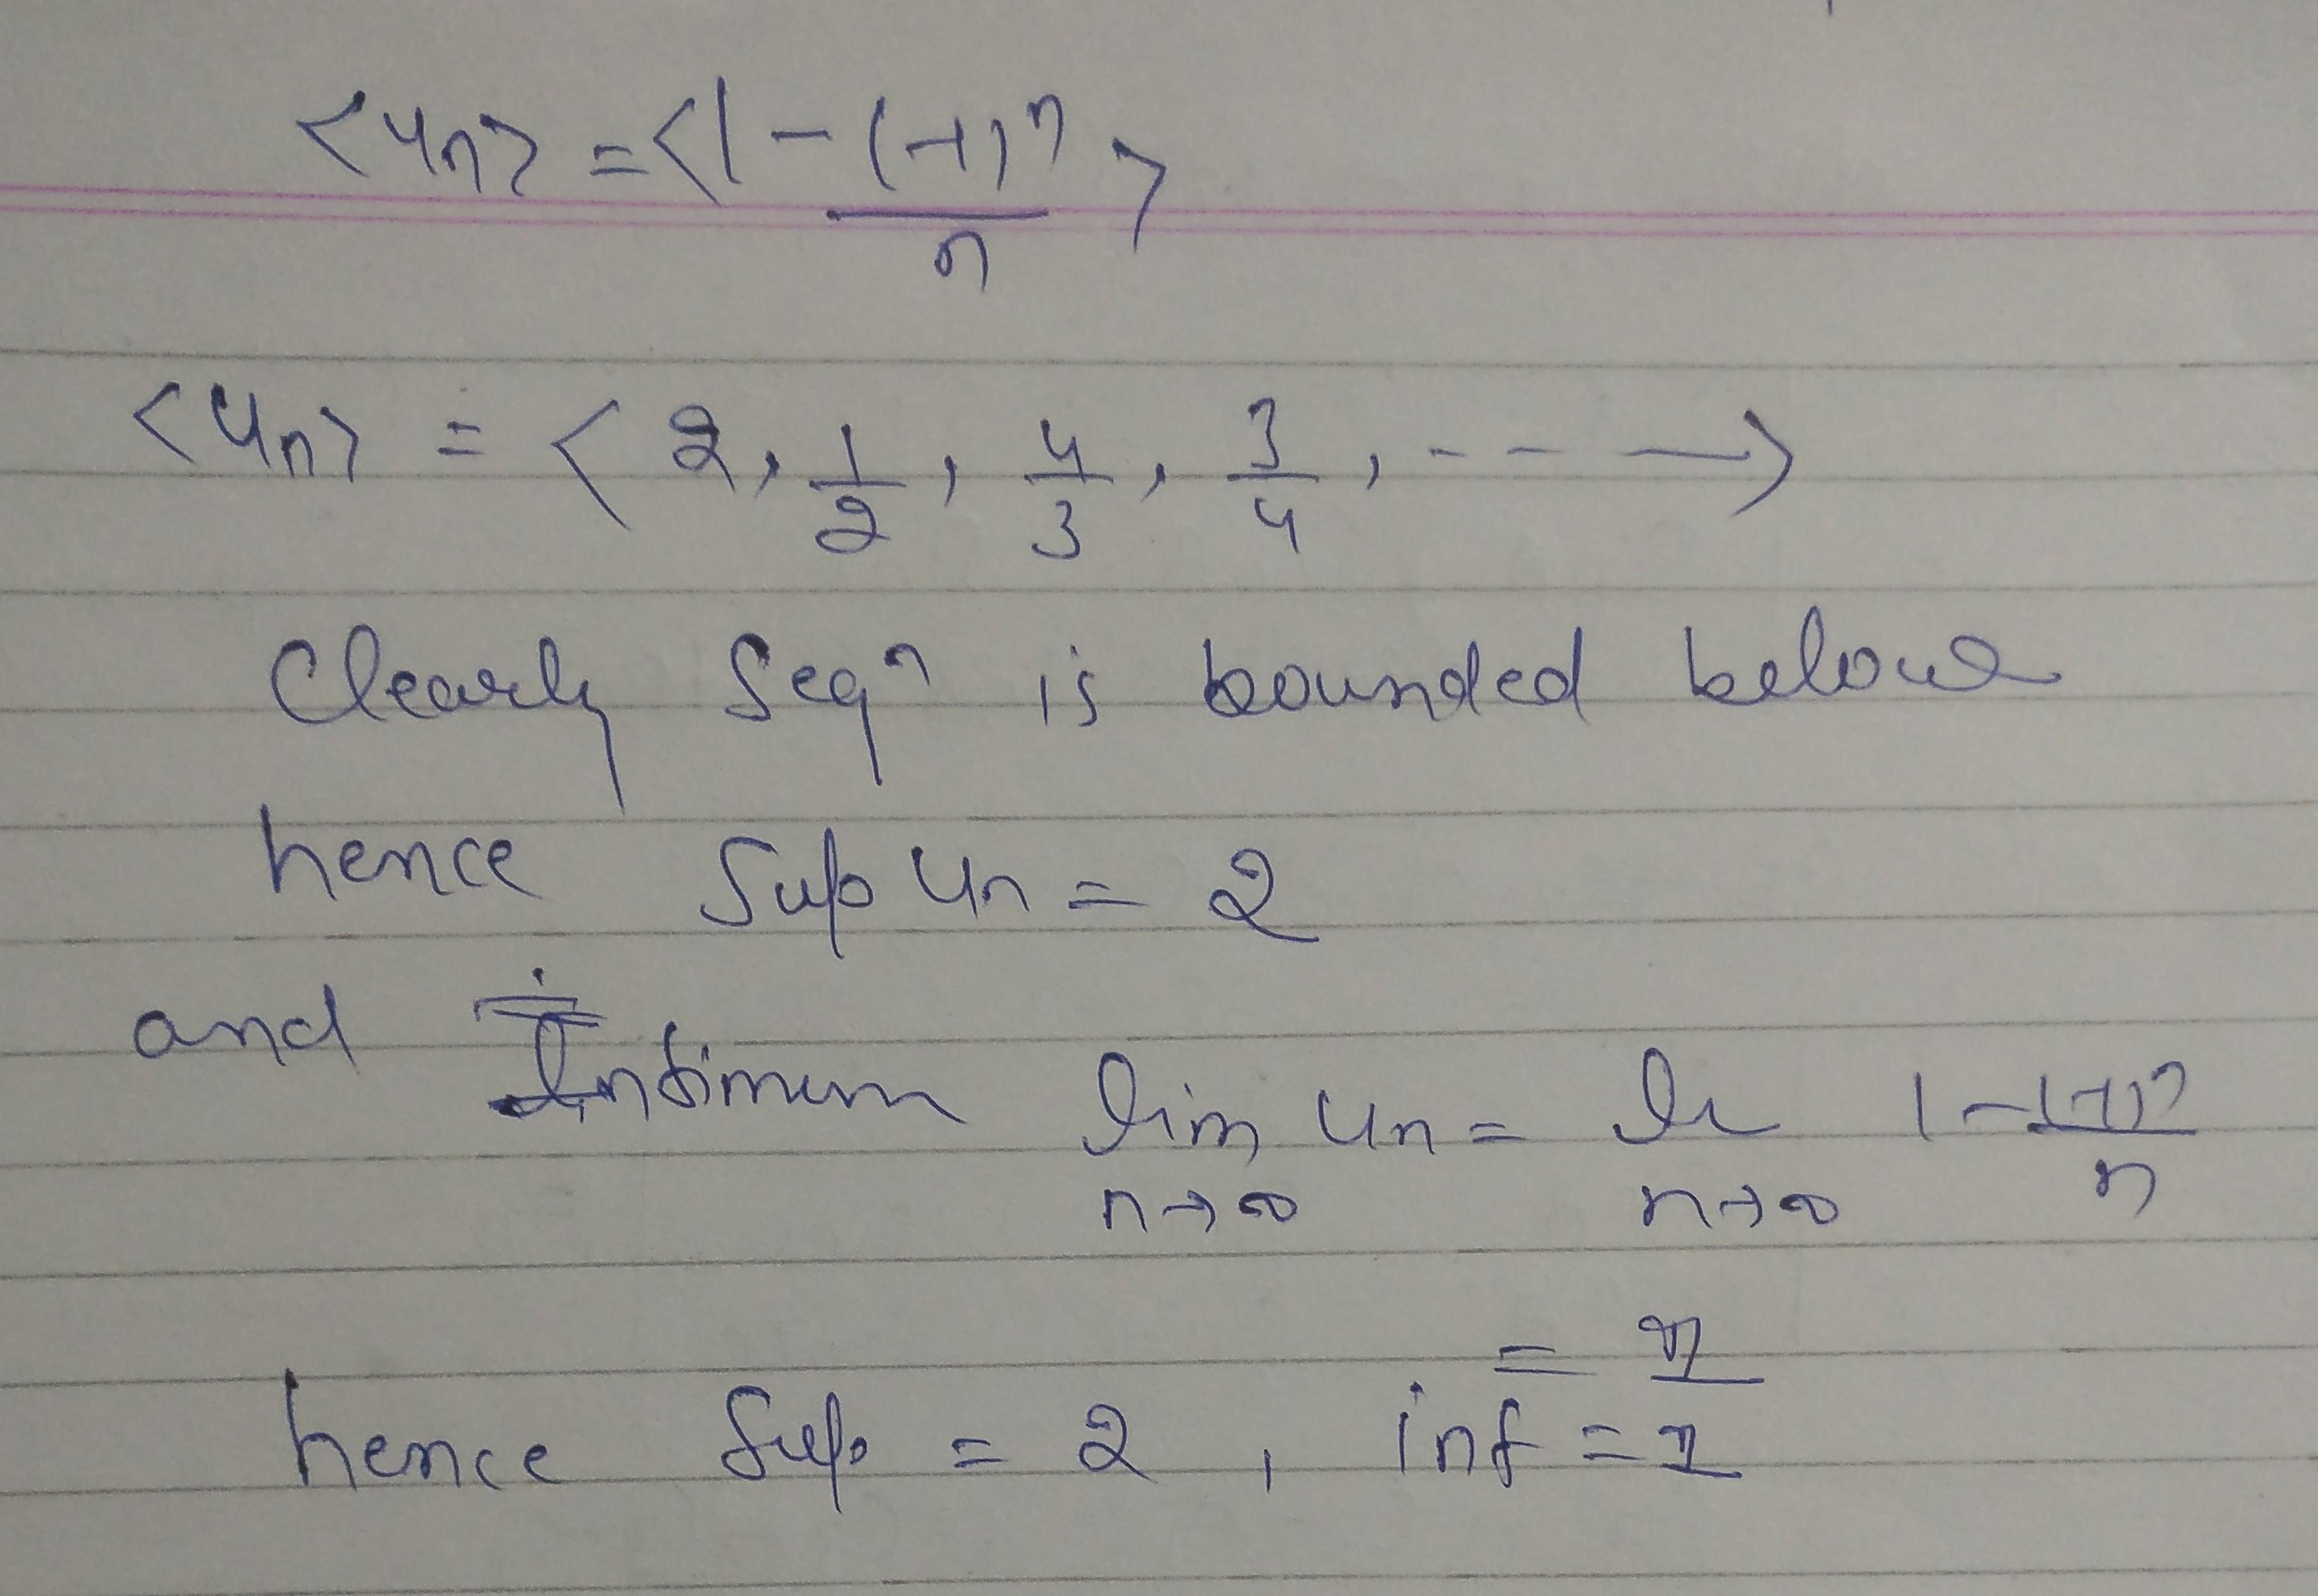 <uₙ> = <1 - (-1)ⁿ/n>
<uₙ> = < 2, 1/2, 4/3, 3/4, - - - →>
Clearly Seqⁿ is bounded below
hence Sup uₙ = 2
and Infimum lim n→∞ uₙ = n→∞ 1 - (-1)ⁿ/n
=
hence Sup = 2, inf =